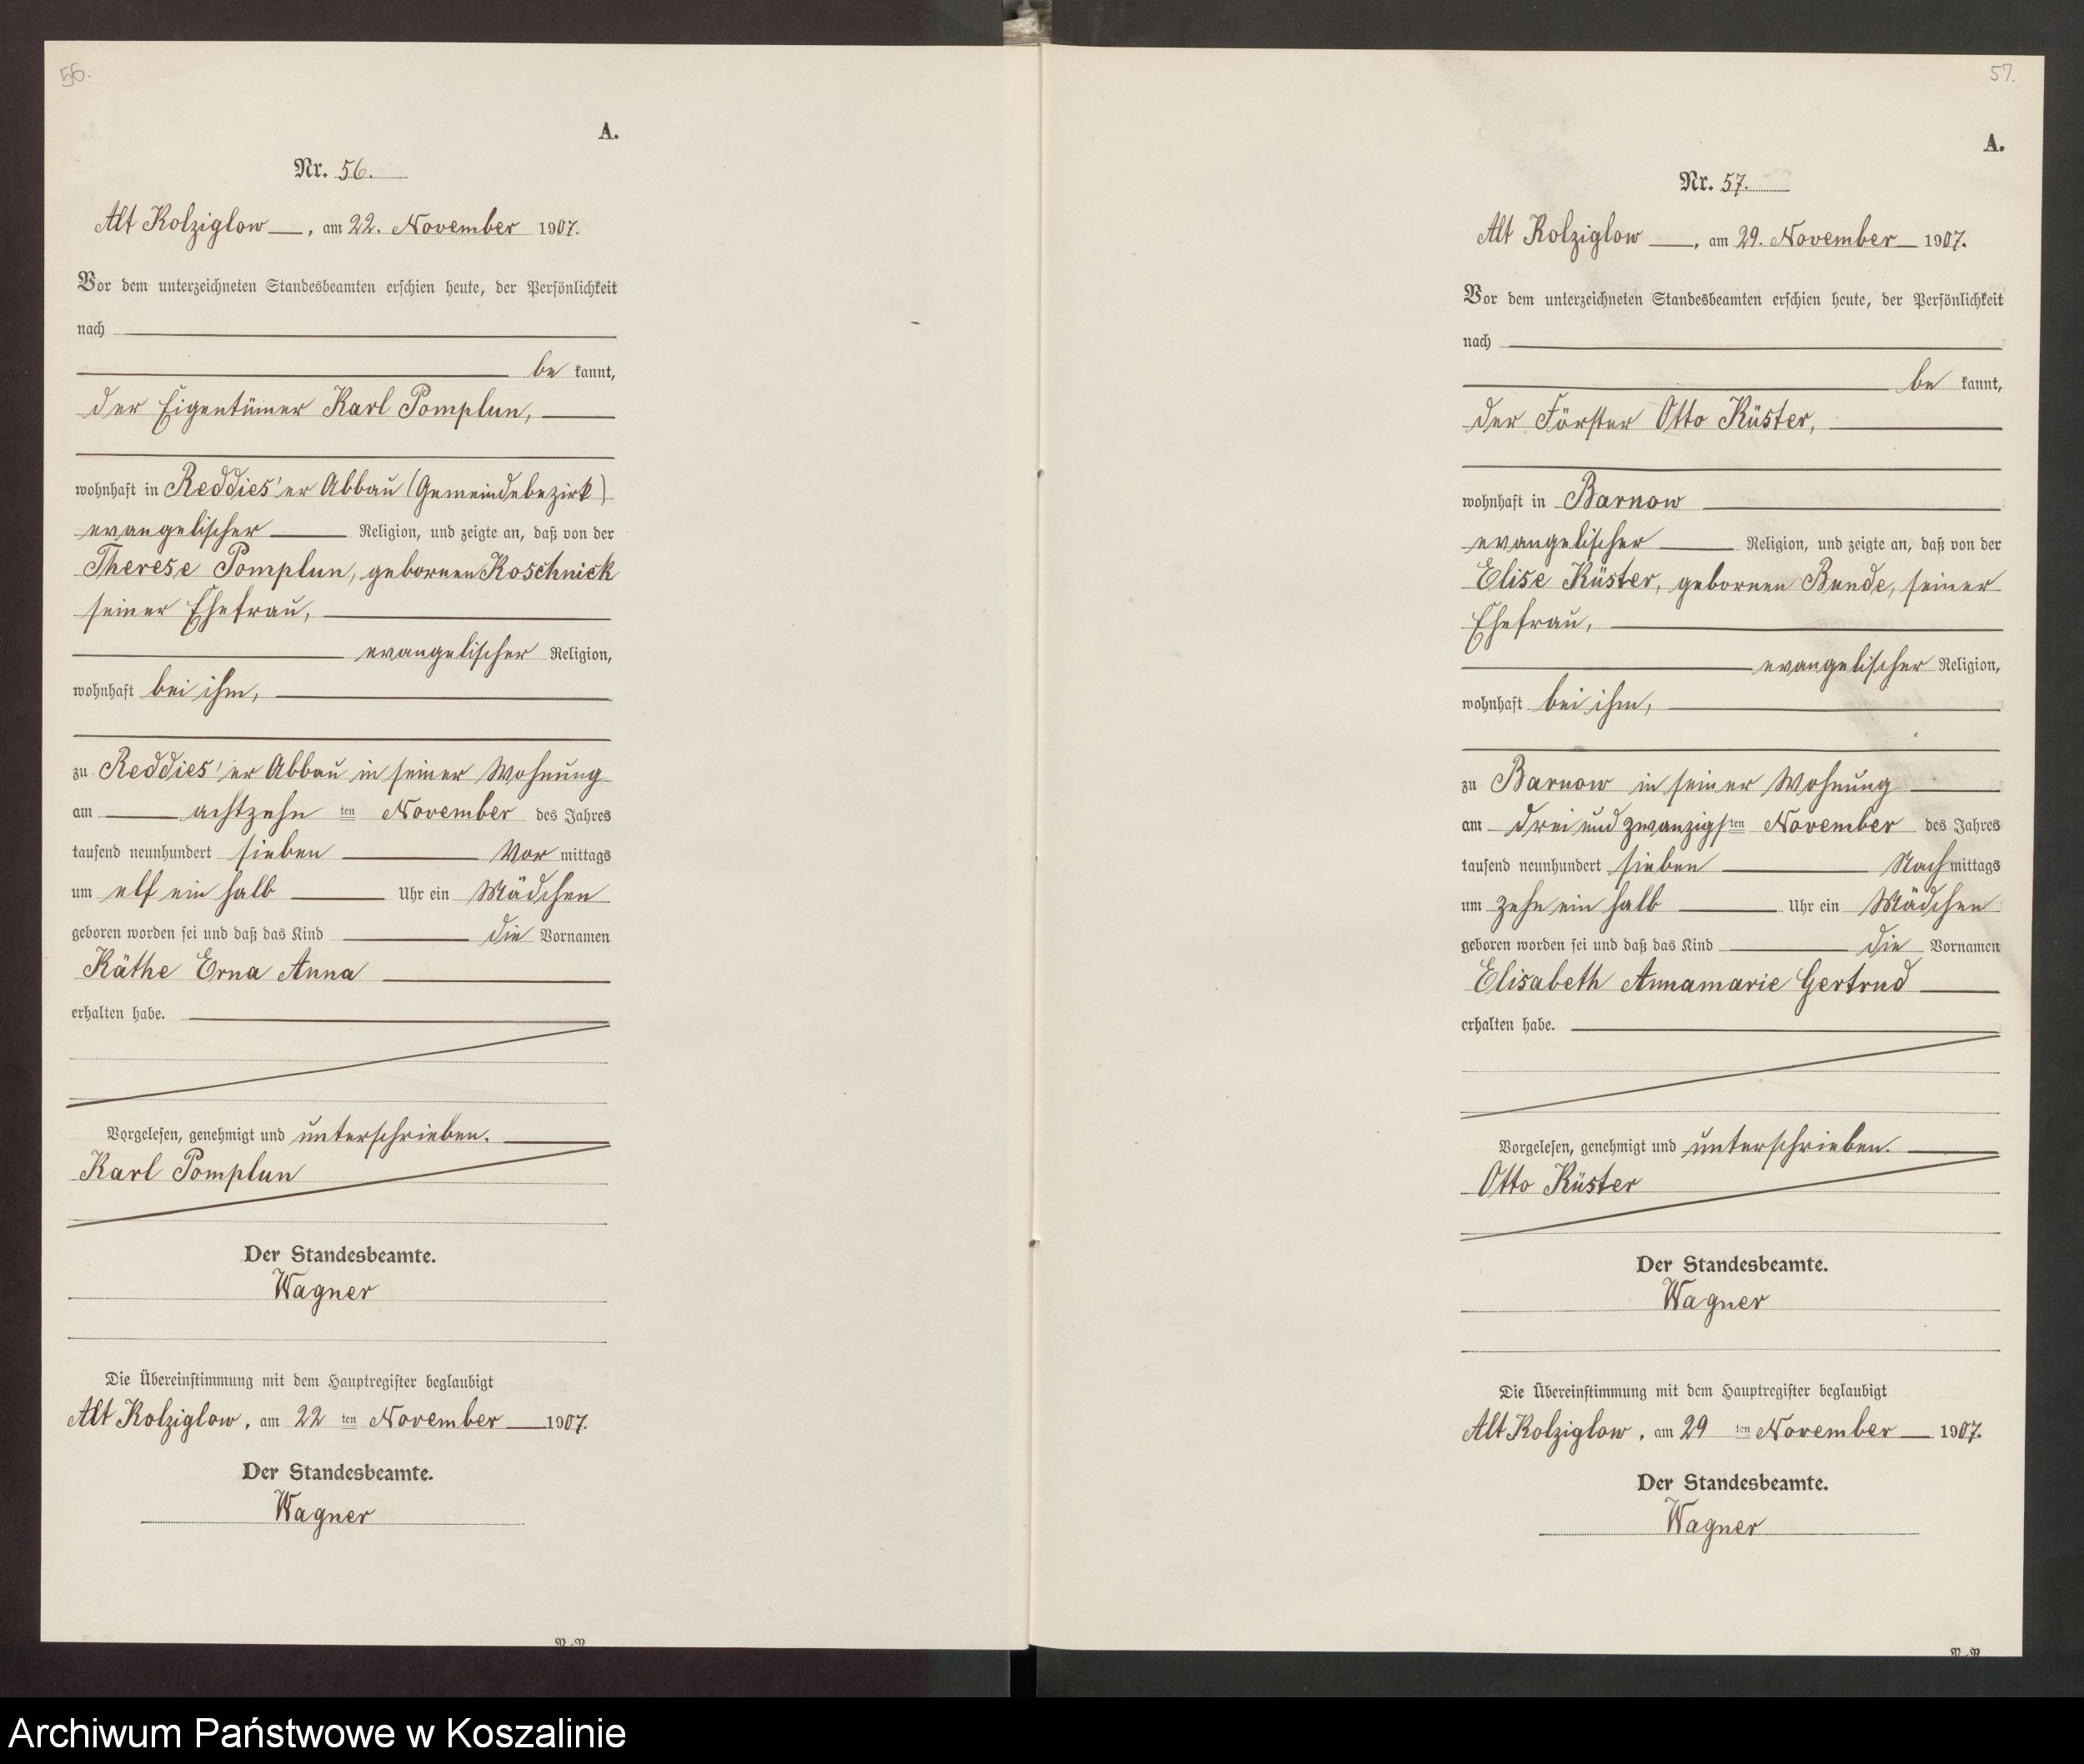 56.
A.
Nr. 56.
Alt Kolziglow, am 22. November 1907.
Vor dem unterzeichneten Standesbeamten erschien heute, der Persönlichkeit
nach
be kannt,
der Eigentümer Karl Pomplun,
wohnhaft in Reddies'er Abbau (Gemeindebezirk)
evangelischer Religion, und zeigte an, daß von der
Therese Pomplun, gebornen Koschnick
seiner Ehefrau,
evangelischer Religion,
wohnhaft bei ihm,
zu Reddies'er Abbau in seiner Wohnung
am achtzehn ten November des Jahres
tausend neunhundert sieben Vor mittags
um elf ein halb Uhr ein Mädchen
geboren worden sei und daß das Kind die Vornamen
Käthe Erna Anna
erhalten habe.
Vorgelesen, genehmigt und unterschrieben.
Karl Pomplun
Der Standesbeamte.
Wagner
Die Übereinstimmung mit dem Hauptregister beglaubigt
Alt Kolziglow, am 22 ten November 1907.
Der Standesbeamte.
Wagner
57.
A.
Nr. 57.
Alt Kolziglow, am 29. November 1907.
Vor dem unterzeichneten Standesbeamten erschien heute, der Persönlichkeit
nach
be kannt,
der Förster Otto Küster,
wohnhaft in Barnow
evangelischer Religion, und zeigte an, daß von der
Elise Küster, gebornen Bunde, seiner
Ehefrau,
evangelischer Religion,
wohnhaft bei ihm,
zu Barnow in seiner Wohnung
am drei und zwanzigsten November des Jahres
tausend neunhundert sieben Nach mittags
um zehn ein halb Uhr ein Mädchen
geboren worden sei und daß das Kind die Vornamen
Elisabeth Annamarie Gertrud
erhalten habe.
Vorgelesen, genehmigt und unterschrieben.
Otto Küster
Der Standesbeamte.
Wagner
Die Übereinstimmung mit dem Hauptregister beglaubigt
Alt Kolziglow, am 29 ten November 1907.
Der Standesbeamte.
Wagner
Archiwum Państwowe w Koszalinie